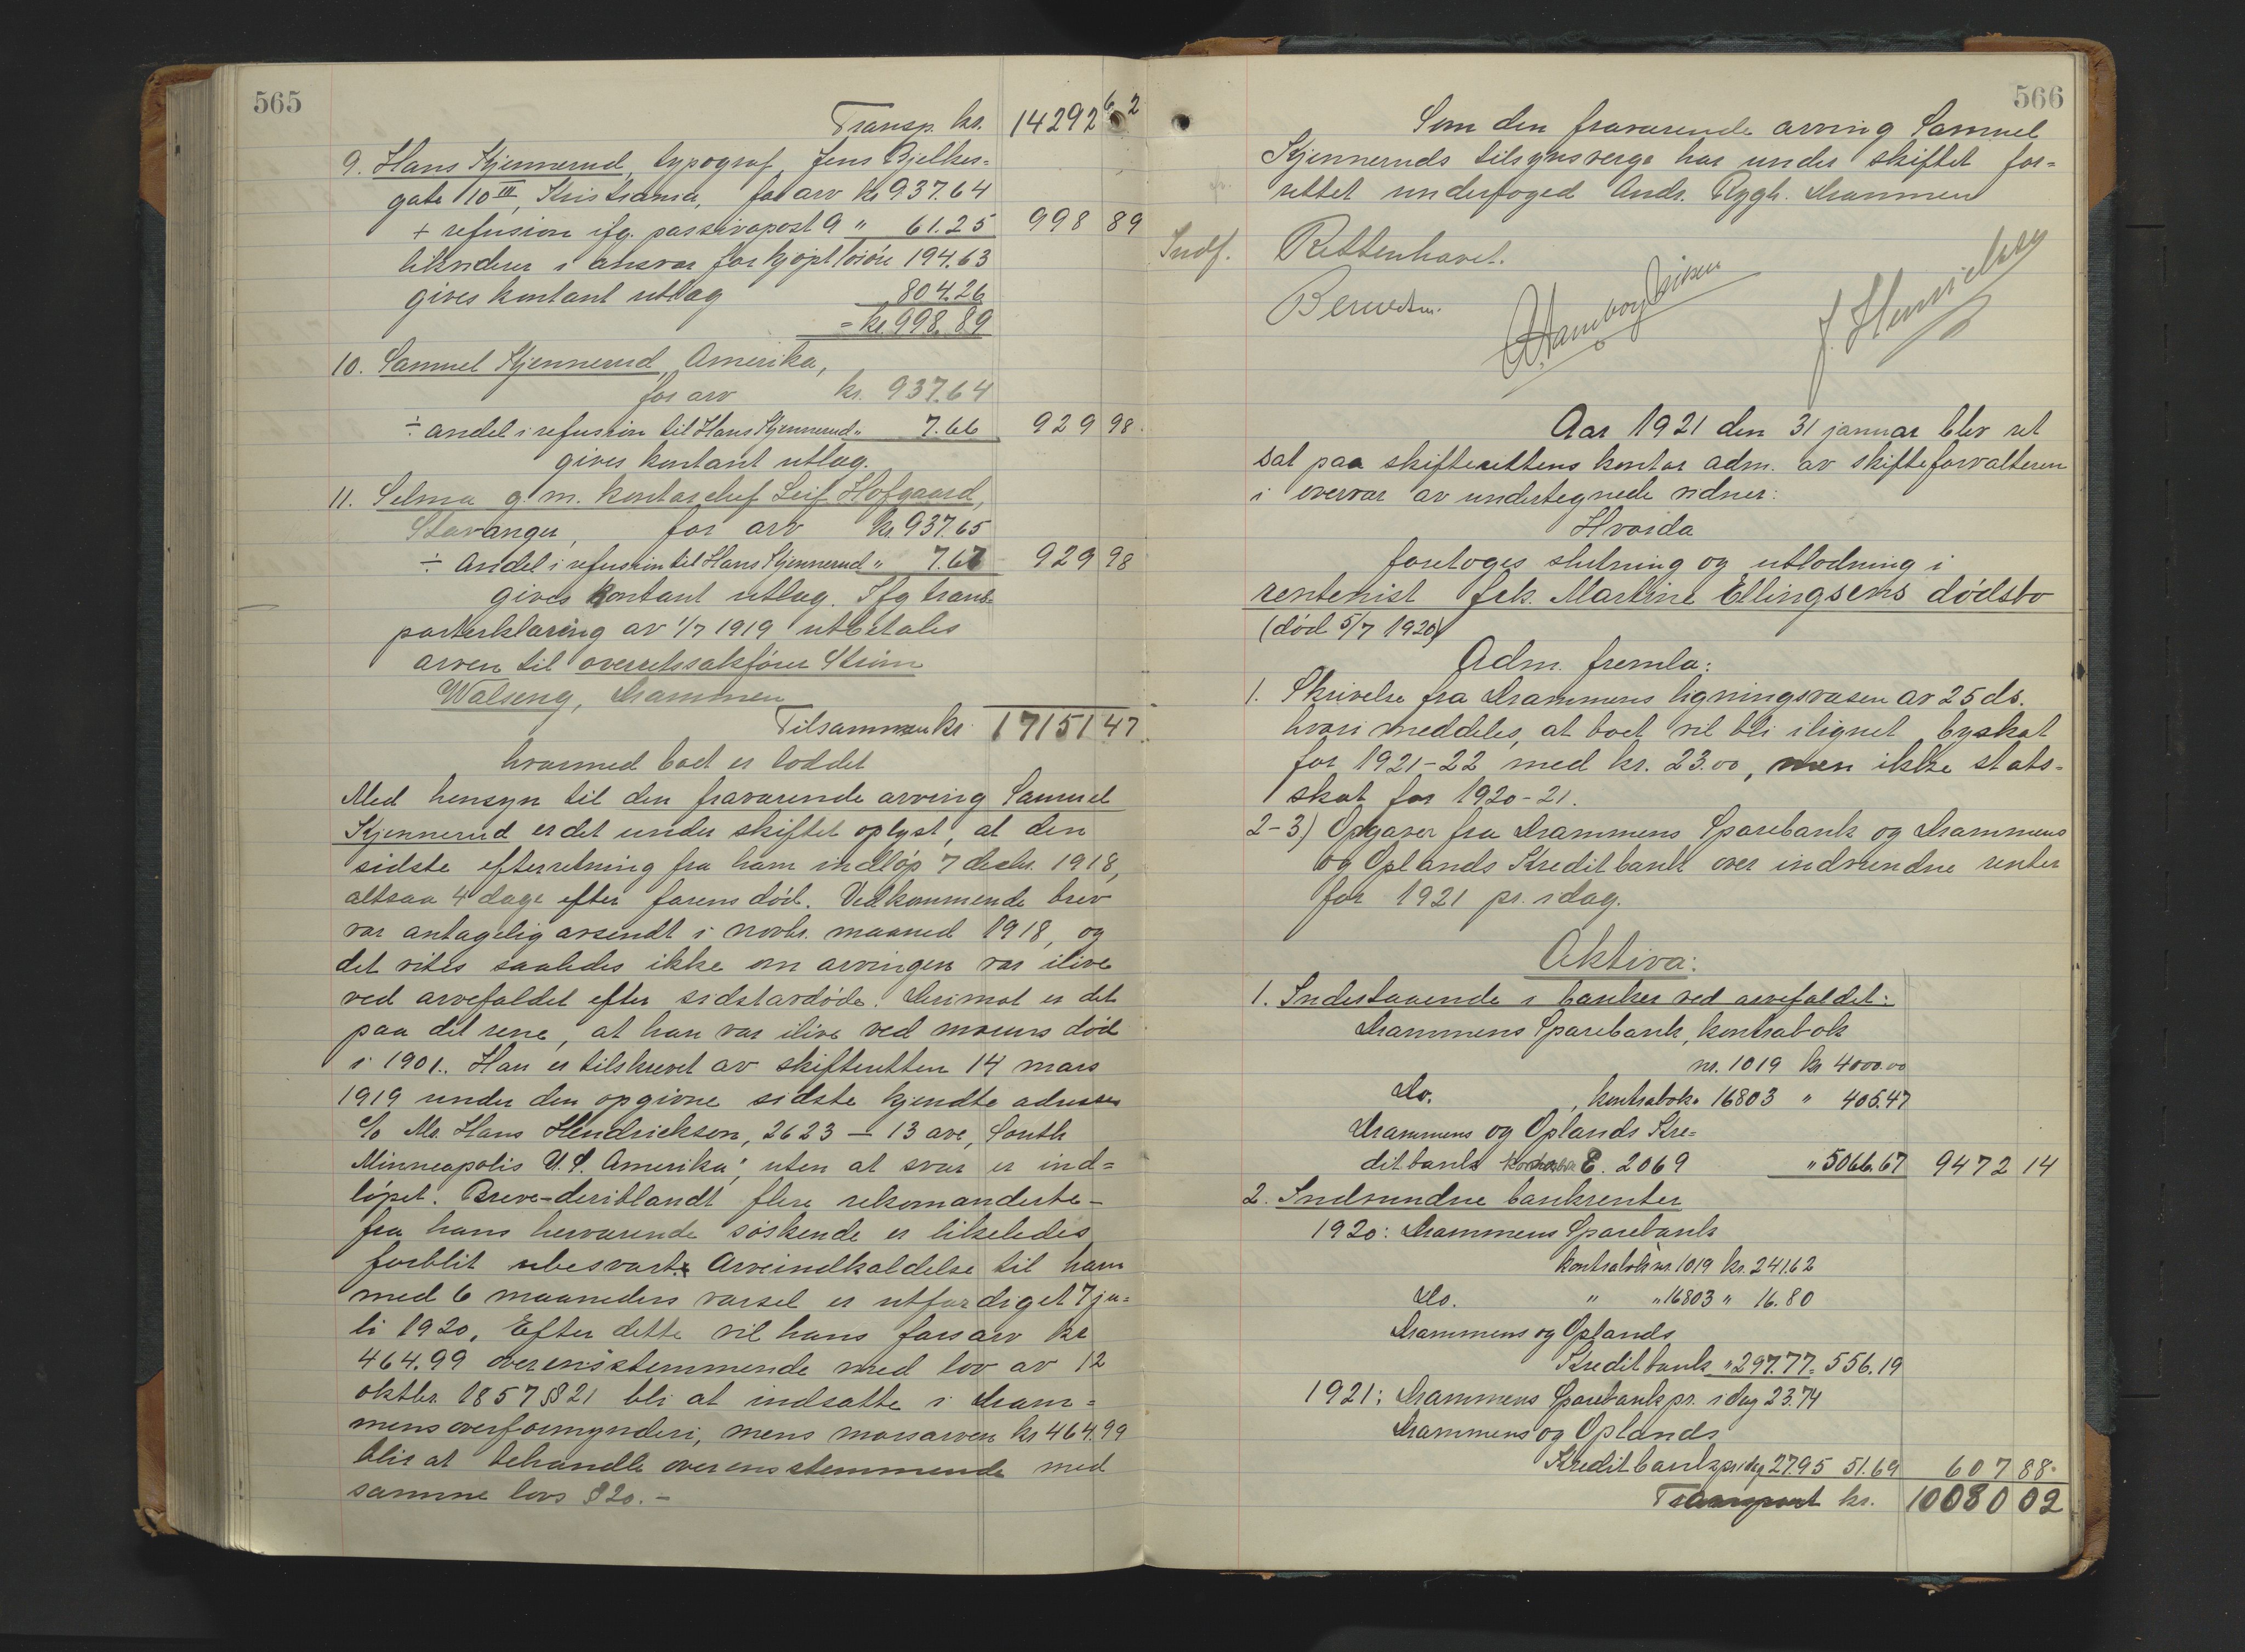 565
Transp. kr. 14292 62
9. Hans Kjennerud, typograf, Jens Bjelkes-
gate 10 III, Kristiania, for arv kr 937.64
+ refusion ifg. passivapost 9 " 61.25 998 89
likviderer i ansvar for kjøpt løsøre 194.63
gives kontant utlæg 804.26
= kr. 998.89
10. Samuel Kjennerud, Amerika,
for arv kr. 937.64
÷ andel i refusion til Hans Kjennerud " 7.66 929 98.
gives kontant utlæg.
11. Selma g. m. kontorchef Leif Hofgaard,
Stavanger, for arv kr. 937.65
÷ Andel i refusion til Hans Kjennerud " 7.67 929 98
gives kontant utlæg. Ifg trans-
porterklæring av 1/7 1919 utbetales
arven til overretssakfører Strøm
Walseng, Drammen
Tilsammen kr. 17151 47.
hvormed boet er loddet
Med hensyn til den fraværende arving Samuel
Kjennerud er det under skiftet oplyst, at den
sidste efterretning fra ham indløp 7 decbr. 1918,
altsaa 4 dage efter farens død. Vedkommende brev
var antagelig avsendt i novbr. maaned 1918, og
det vites saaledes ikke om arvingen var ilive
ved arvefaldet efter sidstavdøde. Derimot er det
paa det rene, at han var ilive ved morens død
i 1901. Han er tilskrevet av skifteretten 14 mars
1919 under den opgivne sidste kjendte adresse
c/o Mr. Hans Hendrickson, 2623 – 13 ave, South
Minneapolis U.S. Amerika", uten at svar er ind-
løpet. Breve – deriblandt flere rekomanderte –
fra hans herværende søskende er likeledes
forblit ubesvart. Arveindkaldelse til ham
med 6 maaneders varsel er utfærdiget 7 ju-
li 1920. Efter dette vil hans farsarv kr
464.99 overensstemmende med lov av 12
oktbr. 1857 § 21 bli at indsætte i Dram-
mens overformynderi, mens morsarven kr 464.99
blir at behandle overensstemmende med
samme lovs § 20. –
566
Som den fraværende arving Samuel
Kjenneruds tilsynsverge har under skiftet for-
rettet underfoged Andr. Rygh. Drammen
Indf. Retten hævet.
J. Henrichsen
Aar 1921 den 31 januar blev ret
sat paa skifterettens kontor adm. av skifteforvalteren
i overvær av undertegnede vidner:
Hvorda
foretoges slutning og utlodning i
rentenist frk. Martine Ellingsens dødsbo
(død 5/7 1920)
Adm. fremla:
1. Skrivelse fra Drammens ligningsvæsen av 25 ds.
hvori meddeles, at boet vil bli ilignet byskat
for 1921–22 med kr. 23.00, men ikke stats-
skat for 1920-21.
2-3) Opgaver fra Drammens Sparebank og Drammens
og Oplands Kreditbank over indvundne renter
for 1921 pr. idag.
Aktiva:
1. Indestaaende i banker ved arvefaldet:
Drammens Sparebank, kontrabok
nr. 1019 kr 4000.00
Do. , kontrabok. 16803 " 405.47
Drammens og Oplands Kre-
ditbank kontrabok E. 2069 " 5066.67 9472 14
2. Indvundne bankrenter
1920: Drammens Sparebank
kontrabok nr. 1019 kr. 241.62
Do. " " 16803 " 16.80
Drammens og Oplands
Kreditbank " 297.77 = 556.19
1921: Drammens Sparebank pr. idag 23.74
Drammens og Oplands
Kreditbank pr idag 27.95 51.69 607 88.
Transport kr. 10080 02